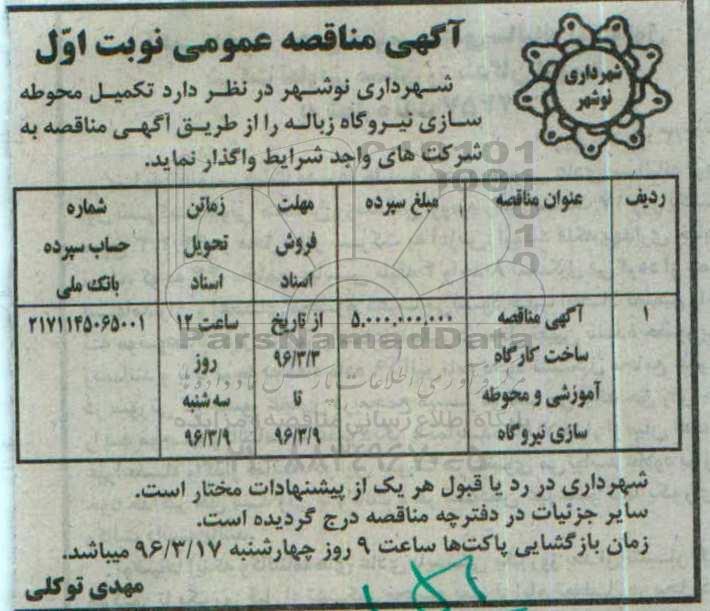 آگهی مناقصه عمومی نوبت اوّل
شهرداری
نوشهر
شهرداری نوشهر در نظر دارد تکمیل محوطه
سازی نیروگاه زباله را از طریق آگهی مناقصه به
شرکت های واجد شرایط واگذار نماید.
ردیف عنوان مناقصه مبلغ سپرده مهلت فروش اسناد زماتن تحویل اسناد شماره حساب سپرده بانک ملی
۱ آگهی مناقصه ساخت کارگاه آموزشی و محوطه سازی نیروگاه ۵.۰۰۰.۰۰۰.۰۰۰ از تاریخ ۹۶/۳/۳ تا ۹۶/۳/۹ ساعت ۱۲ روز سه شنبه ۹۶/۳/۹ ۲۱۷۱۱۴۵۰۶۵۰۰۱
ParsNamadData
شهرداری در رد یا قبول هر یک از پیشنهادات مختار است.
سایر جزئیات در دفترچه مناقصه درج گردیده است.
زمان بازگشایی پاکت‌ها ساعت ۹ روز چهارشنبه ۹۶/۳/۱۷ میباشد.
مهدی توکلی